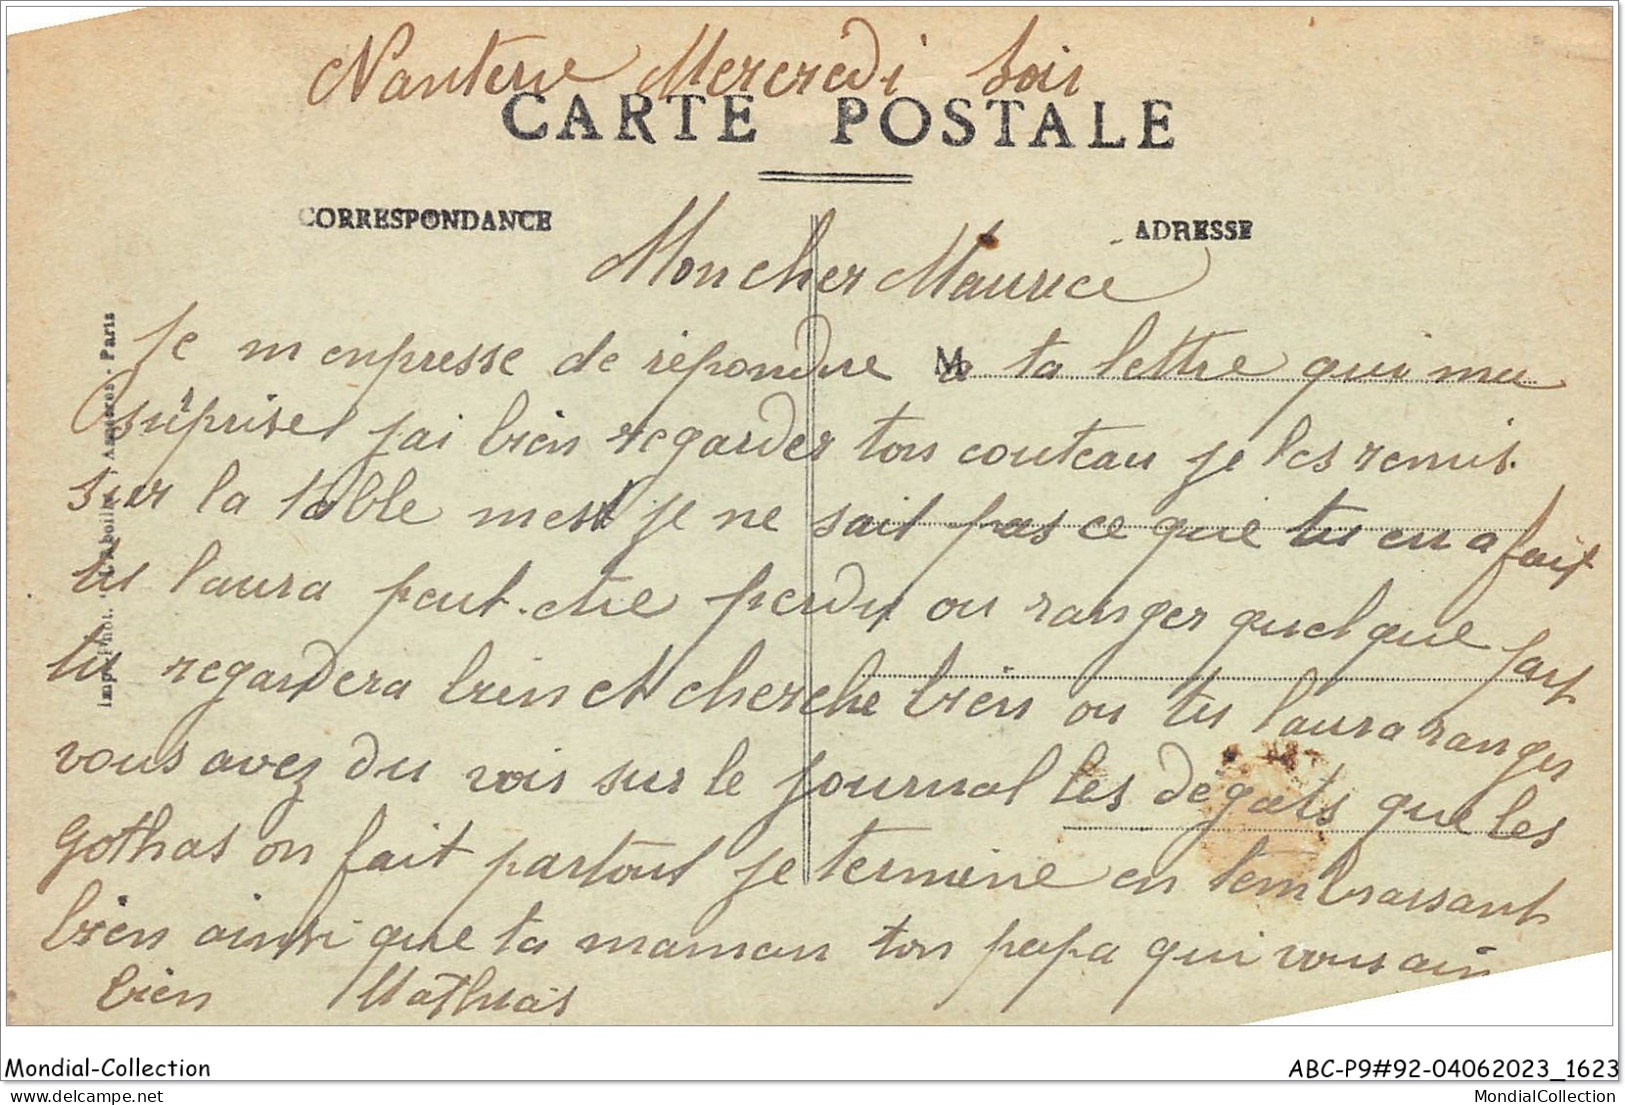 Nanterre Mercredi Soir
CARTE POSTALE
CORRESPONDANCE
ADRESSE
Mon cher Maurice
je m enpresse de répondre a ta lettre qui ma
surprise j ai bien regarder ton couteau je les remis
sur la table mest je ne sait pas ce que tu en a fait
tu laura peut-etre perdu ou ranger quelque part
tu regardera bien et cherche bien ou tu laura ranger
vous avez du voir sur le journal les dégats que les
gothas on fait partout je termine en tembrassant
bien ainsi que ta maman ton papa qui vous aim
bien Mathias
M
Imp. Phot. Aboilard, Asnières - Paris
Mondial-Collection
ABC-P9#92-04062023_1623
delcampe.net
MondialCollection